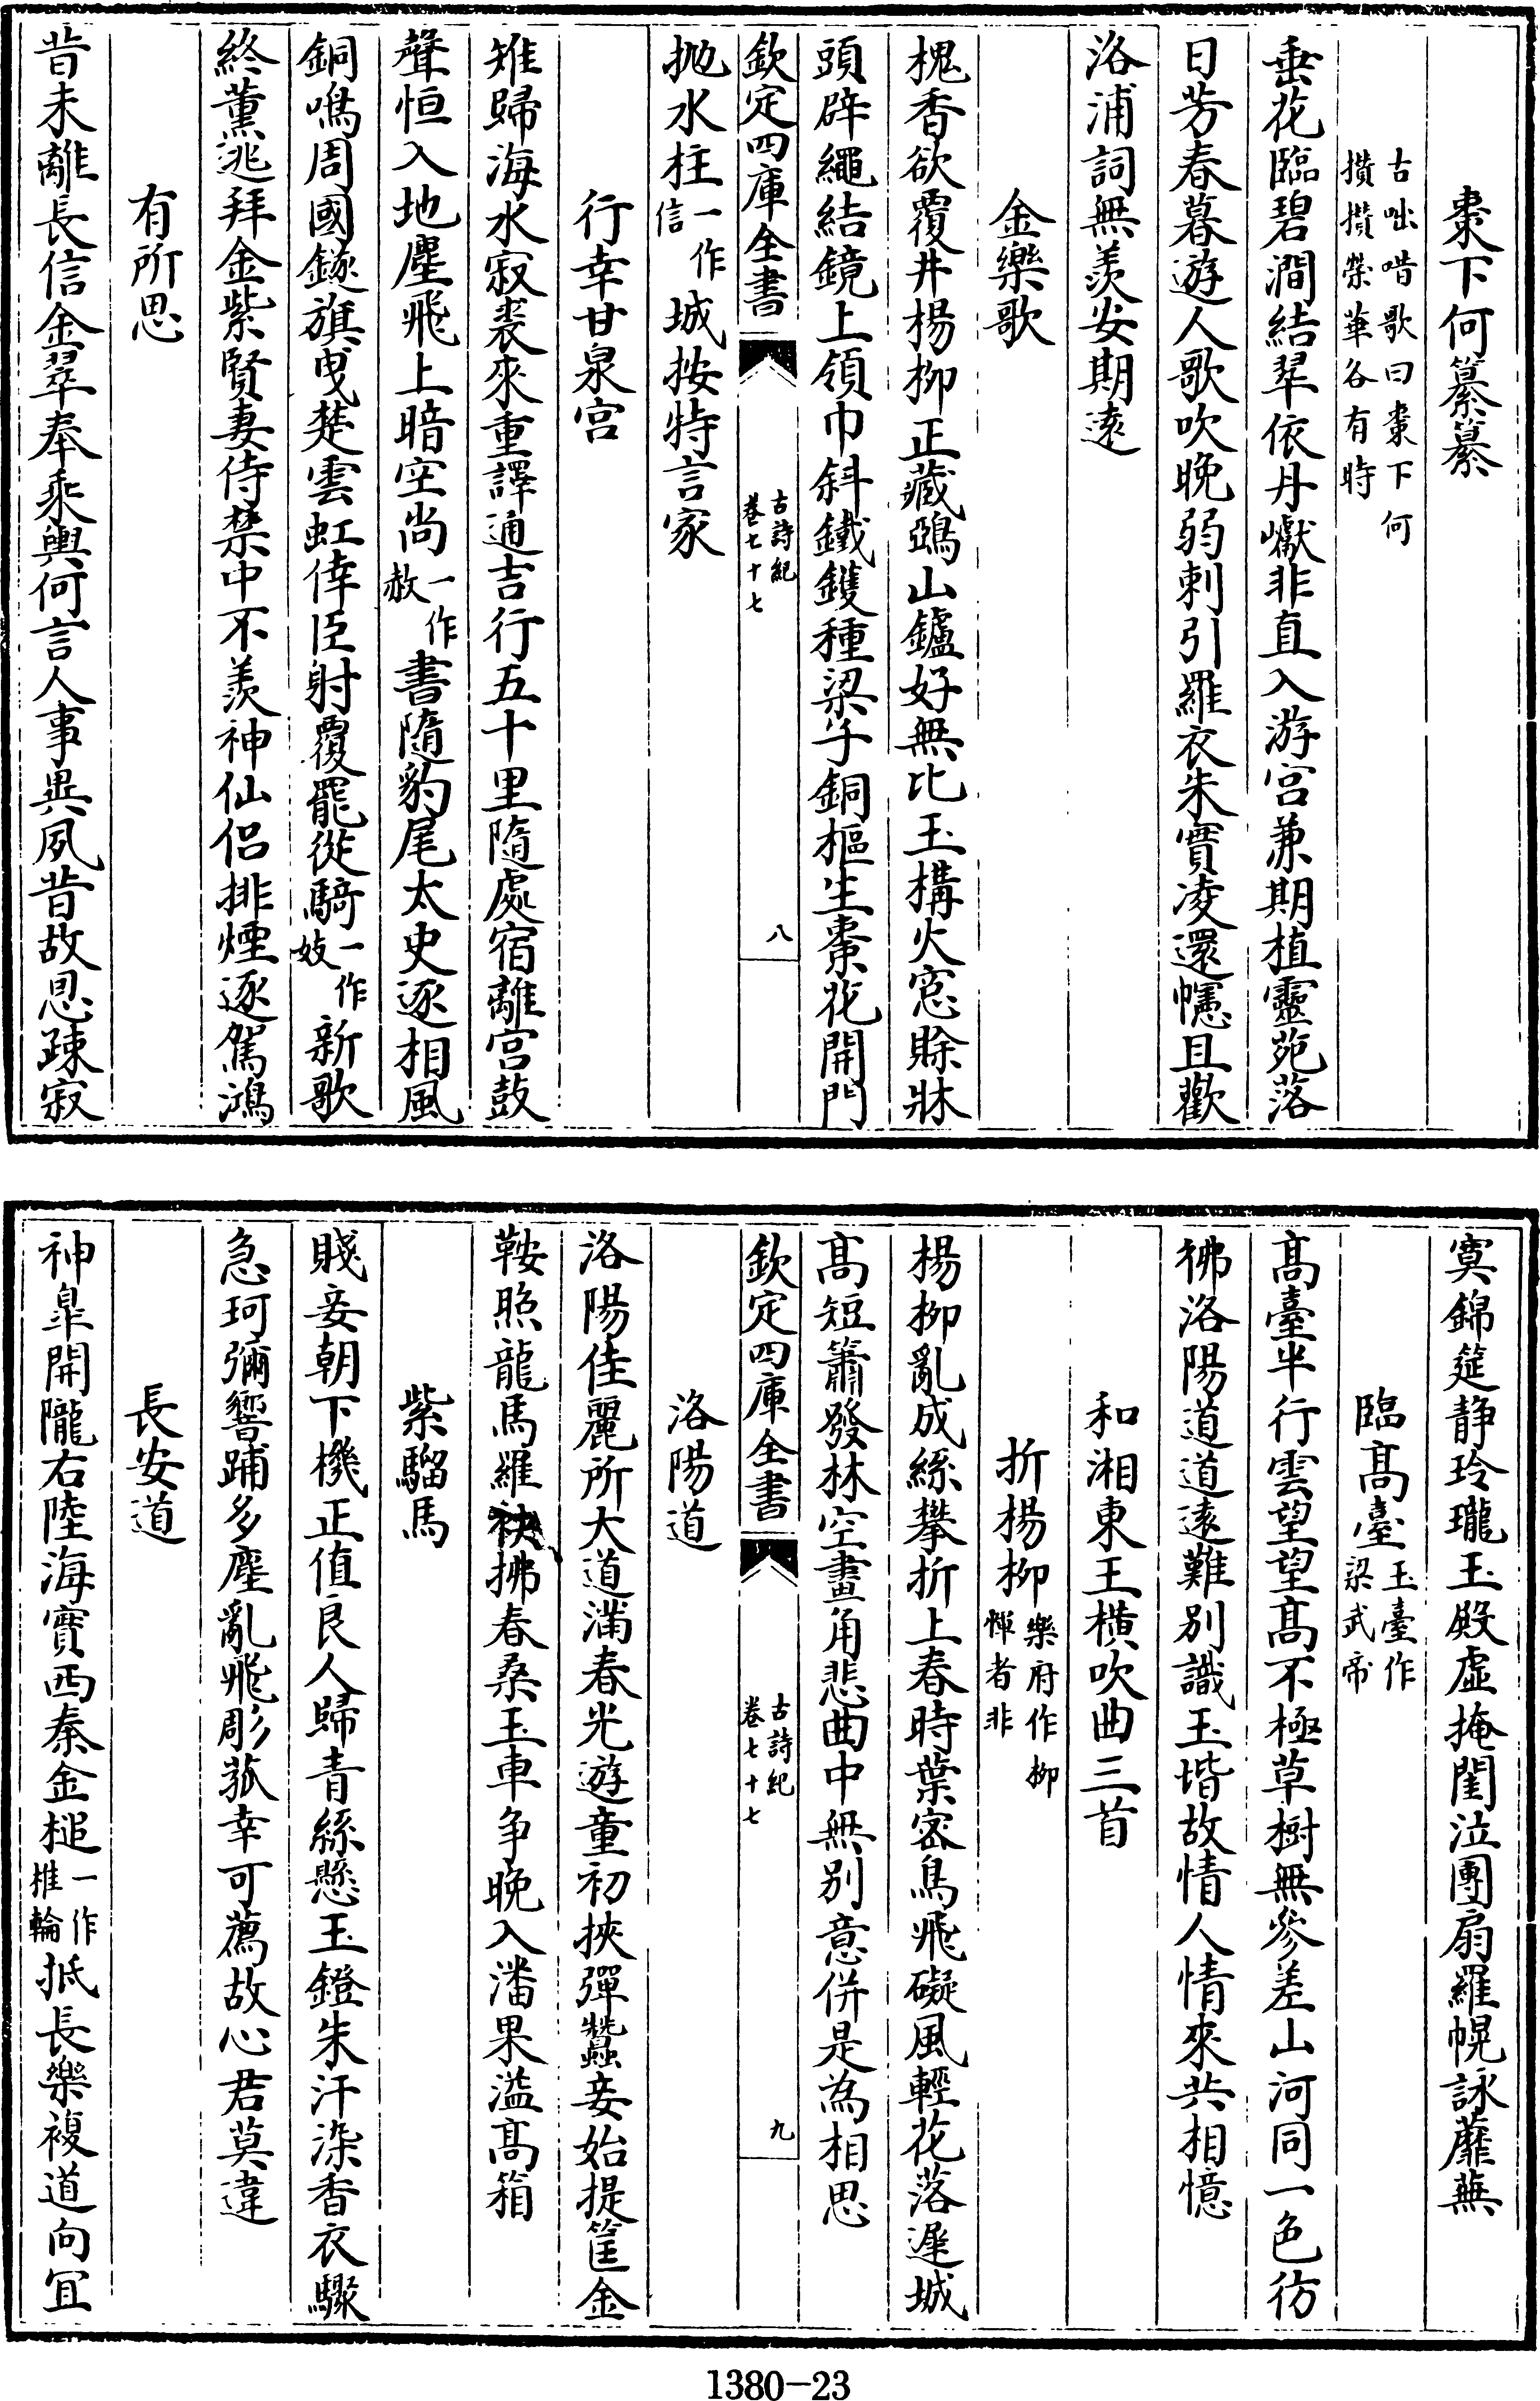 棗下何纂纂
古咄唶歌曰棗下何
攅攅榮華各有時
垂花臨碧澗結翠依丹巘非直入游宫兼期植靈苑落
日芳春暮遊人歌吹晚弱刺引羅衣朱實凌還幰且歡
洛浦詞無羨安期遠
金樂歌
槐香欲覆井楊柳正藏鵶山鑪好無比玉構火窓賖牀
頭辟繩結鏡上領巾斜鐵鑊種梁子銅樞生棗花開門
欽定四庫全書
古詩紀
卷七十七
八
抛水柱一作信城按特言家
行幸甘泉宫
雉歸海水寂裘來重譯通吉行五十里隨處宿離宫鼓
聲恒入地塵飛上暗空尚一作赦書隨豹尾太史逐相風
銅鳴周國鐩旗曵楚雲虹倖臣射覆罷從騎一作妓新歌
終薰逃拜金紫賢妻侍禁中不羨神仙侣排煙逐駕鴻
有所思
昔未離長信金翠奉乘輿何言人事異夙昔故恩疎寂
寞錦筵静玲瓏玉殿虚掩閨泣團扇羅幌詠蘼蕪
臨髙臺玉臺作梁武帝
髙臺半行雲望望髙不極草樹無參差山河同一色彷
彿洛陽道道遠難别識玉堦故情人情來共相憶
和湘東王横吹曲三首
折楊柳樂府作柳惲者非
楊柳亂成絲攀折上春時葉宻鳥飛礙風輕花落遲城
髙短簫發林空畫角悲曲中無别意併是為相思
欽定四庫全書
古詩紀
卷七十七
九
洛陽道
洛陽佳麗所大道滿春光遊童初挾彈蠶妾始提筐金
鞍照龍馬羅袂拂春桑玉車争晚入潘果溢髙箱
紫騮馬
賤妾朝下機正值良人歸青絲懸玉鐙朱汗染香衣驟
急珂彌響跼多塵亂飛彫菰幸可薦故心君莫違
長安道
神臯開隴右陸海實西秦金槌一作椎輪抵長樂複道向宜
1380-23